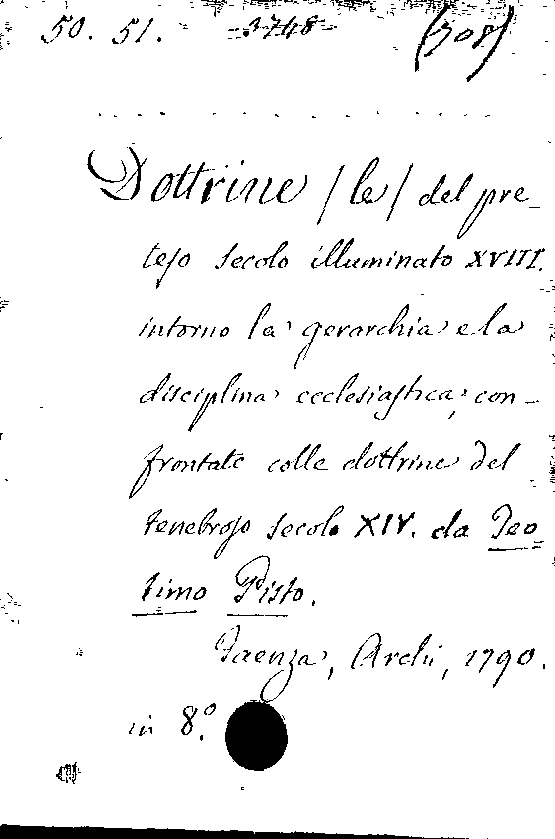 50. 51. 3748 (708)
Dottrine /le/ del pre-
teso secolo illuminato XVIII.
intorno la gerarchia e la
disciplina ecclesiastica, con-
frontate colle dottrine del
tenebroso secolo XIV. da Teo
timo Pisto.
Faenza, Archi, 1790.
in 8.º